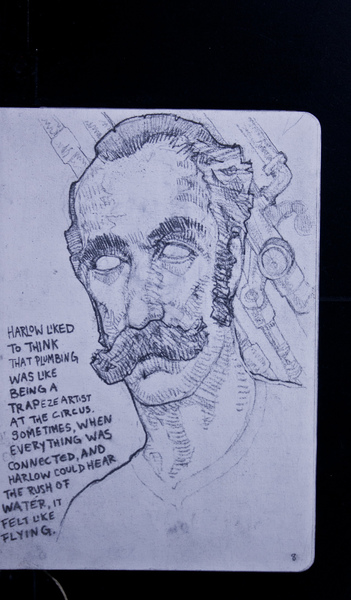 HARLOW LIKED
TO THINK
THAT PLUMBING
WAS LIKE
BEING A
TRAPEZE ARTIST
AT THE CIRCUS.
SOMETIMES, WHEN
EVERYTHING WAS
CONNECTED, AND
HARLOW COULD HEAR
THE RUSH OF
WATER, IT
FELT LIKE
FLYING.
8